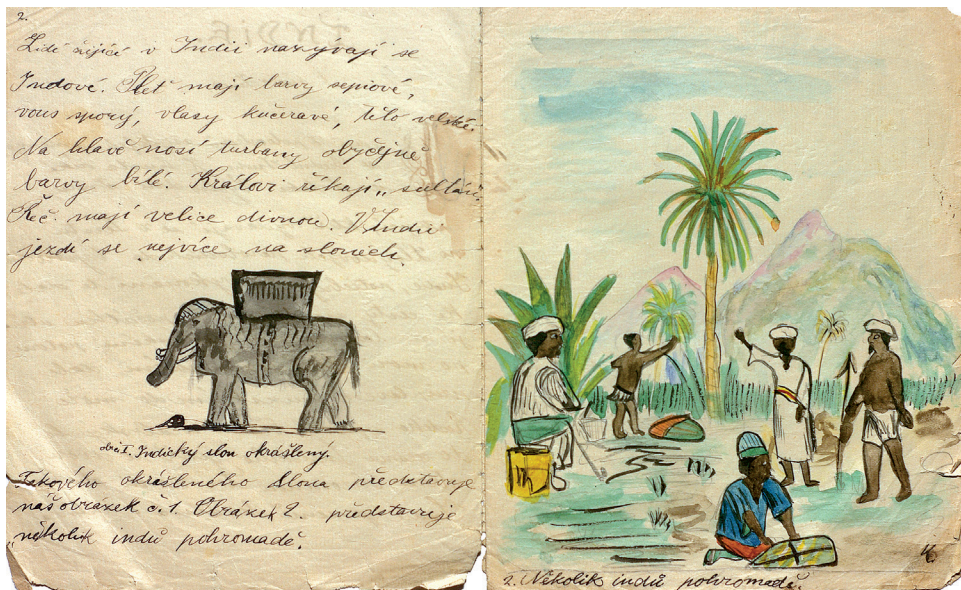 2.
Lidé žijící v Indii nazývají se
Indové. Pleť mají barvy sepiové,
vous sporý, vlasy kučeravé, tělo velské.
Na hlavě nosí turbany obyčejně
barvy bílé. Královi říkají „sultán".
Řeč mají velice divnou. V Indii
jezdí se nejvíce na slonech.
obr. I. Indický slon okrášlený.
Takového okrášleného slona představuje
náš obrázek č. 1. Obrázek 2. představuje
několik indů pohromadě.
2. Několik indů pohromadě.